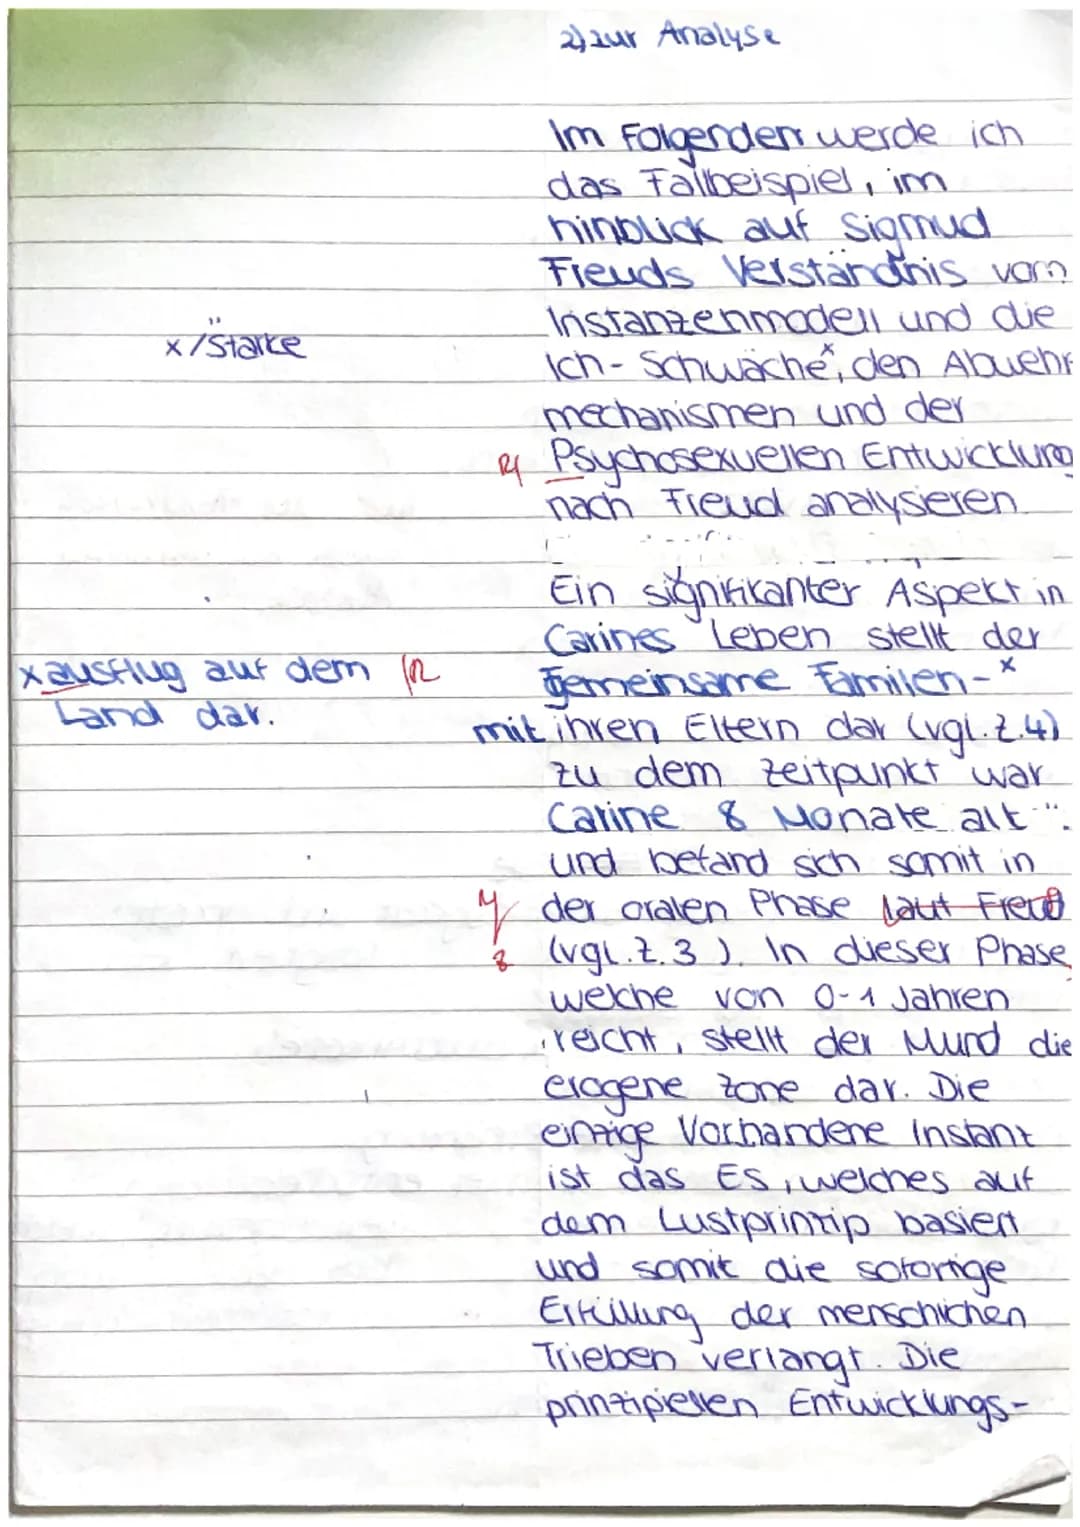 2) zur Analyse
Im Folgenden werde ich
das Fallbeispiel, im
hinblick auf Sigmud
Freuds Verständnis vom
Instanzenmodell und die
x/Stärke
Ich-Schwäche x, den Abwehr
mechanismen und der
R Psychosexuellen Entwicklung
nach Freud analysieren.
Ein signifikanter Aspekt in
Carines Leben stellt der
x ausflug auf dem R
gemeinsame Familen- x
Land dar.
mit ihren Eltern dar (vgl. z. 4)
zu dem Zeitpunkt war
Carine 8 Monate alt
und befand sich somit in
der oralen Phase laut Freud
8 (vgl. z. 3). In dieser Phase,
welche von 0-1 Jahren
reicht, stellt der Mund die
erogene Zone dar. Die
einzige Vorhandene Instant
ist das Es, welches auf
dem Lustprinzip basiert
und somit die sofortige
Erfüllung der menschichen
Trieben verlangt. Die
prinzipiellen Entwicklungs-